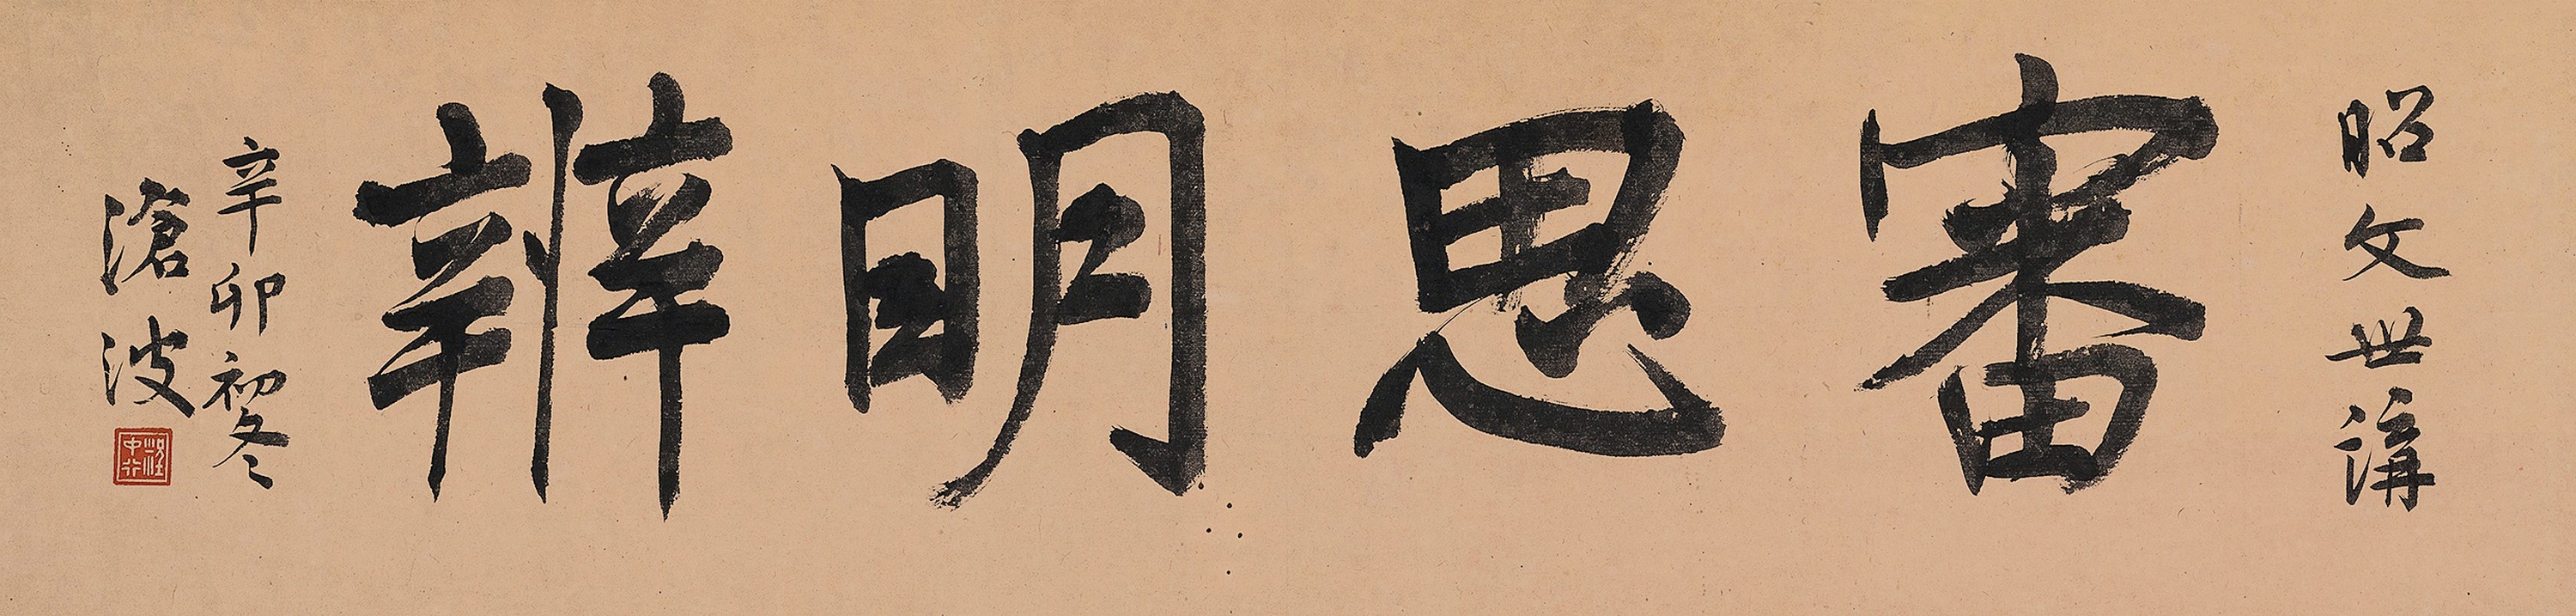 昭文世講
審思明辨
辛卯初冬
滄波